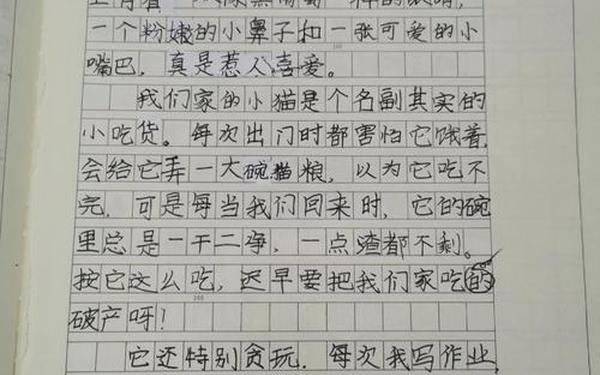 一个粉嫩的小鼻子和一张可爱的小
嘴巴，真是惹人喜爱。
我们家的小猫是个名副其实的
小吃货。每次出门时都害怕它饿着，
会给它弄一大碗猫粮，以为它吃不
完，可是每当我们回来时，它的碗
里总是一干二净，一点渣都不剩。
按它这么吃，迟早要把我们家吃的
破产呀！
它还特别贪玩．每次我写作业，